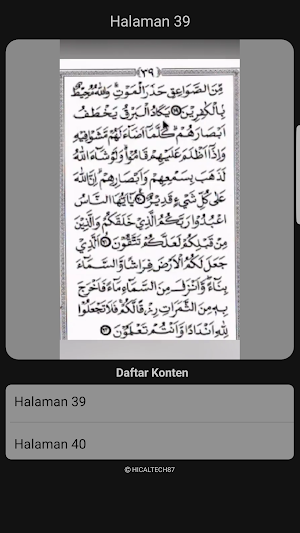 Halaman 39
﴿٣٩﴾
مِّنَ الصَّوَاعِقِ حَذَرَ الْمَوْتِ ۗ وَاللّٰهُ مُحِيْطٌ ۢ
بِالْكٰفِرِيْنَ ۝١٩ يَكَادُ الْبَرْقُ يَخْطَفُ
اَبْصَارَهُمْ ۗ كُلَّمَآ اَضَاۤءَ لَهُمْ مَّشَوْا فِيْهِ
وَاِذَآ اَظْلَمَ عَلَيْهِمْ قَامُوْا ۗ وَلَوْ شَاۤءَ اللّٰهُ
لَذَهَبَ بِسَمْعِهِمْ وَاَبْصَارِهِمْ ۗ اِنَّ اللّٰهَ
عَلٰى كُلِّ شَيْءٍ قَدِيْرٌ ۝٢٠ يٰٓاَيُّهَا النَّاسُ
اعْبُدُوْا رَبَّكُمُ الَّذِيْ خَلَقَكُمْ وَالَّذِيْنَ
مِنْ قَبْلِكُمْ لَعَلَّكُمْ تَتَّقُوْنَ ۝٢١ الَّذِيْ
جَعَلَ لَكُمُ الْاَرْضَ فِرَاشًا وَّالسَّمَاۤءَ
بِنَاۤءً ۖ وَّاَنْزَلَ مِنَ السَّمَاۤءِ مَاۤءً فَاَخْرَجَ
بِهٖ مِنَ الثَّمَرٰتِ رِزْقًا لَّكُمْ ۚ فَلَا تَجْعَلُوْا
لِلّٰهِ اَنْدَادًا وَّاَنْتُمْ تَعْلَمُوْنَ ۝٢٢
Daftar Konten
Halaman 39
Halaman 40
© HICALTECH87